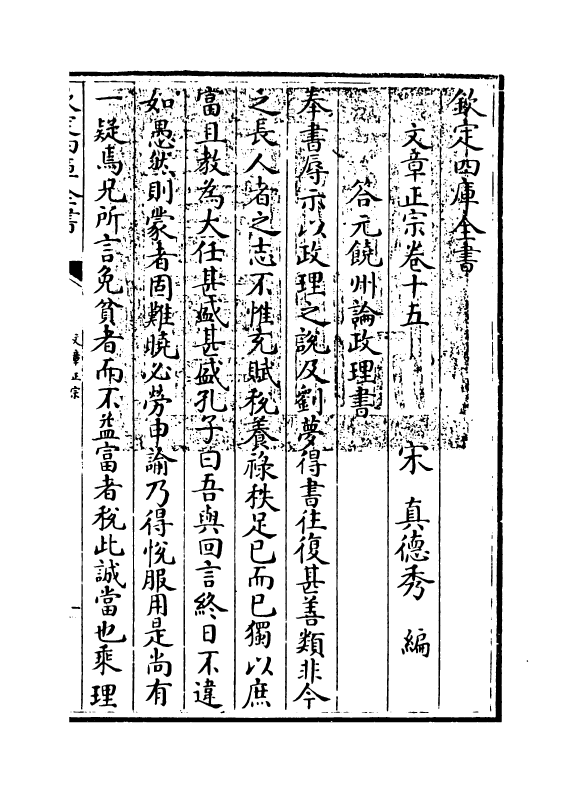 欽定四庫全書
文章正宗卷十五
宋 真德秀 編
答元饒州論政理書
奉書辱示以政理之説及劉夢得書往復甚善類非今
之長人者之志不惟充賦稅養祿秩足已而已獨以庶
富且教為大任甚盛甚盛孔子曰吾與回言終日不違
如愚然則蒙者固難曉必勞申諭乃得悅服用是尚有
一疑焉兄所言免貧者而不益富者稅此誠當也乘理
欽定四庫全書
文章正宗
一